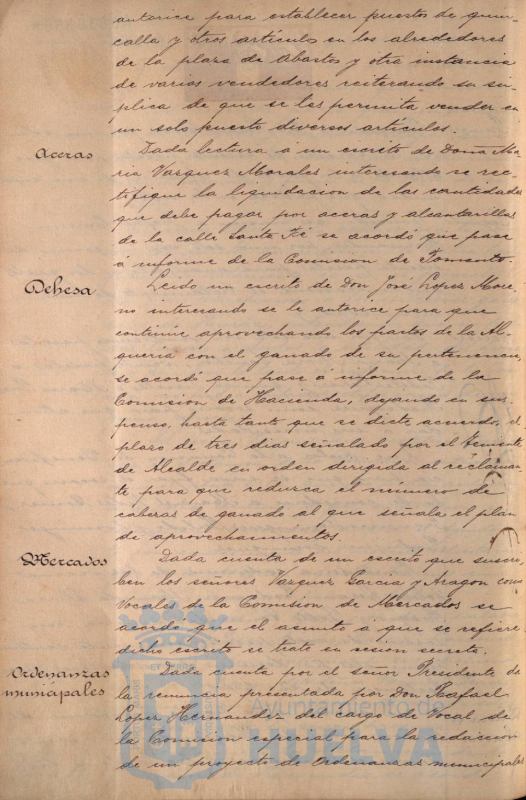 autorice para establecer puestos de quin-
calla y otros artículos en los alrededores
de la plaza de Abastos y otra instancia
de varios vendedores reiterando su sú-
plica de que se les permita vender en
un solo puesto diversos artículos.
Aceras
Dada lectura á un escrito de Doña Ma
ria Vazquez Morales interesando se rec-
tifique la liquidacion de las cantidades
que debe pagar por aceras y alcantarillas
de la calle Santa Fé se acordó que pase
á informe de la Comision de Fomento.
Dehesa
Leido un escrito de Don José Lopez More-
no interesando se le autorice para que
continúe aprovechando los pastos de la Al-
queria con el ganado de su pertenencia,
se acordó que pase á informe de la
Comision de Hacienda, dejando en sus-
penso, hasta tanto que se dicte acuerdo, el
plazo de tres dias señalado por el Teniente
de Alcalde en orden dirigida al reclaman-
te para que reduzca el número de
cabezas de ganado al que señala el plan
de aprovechamientos.
Mercados
Dada cuenta de un escrito que suscri-
ben los señores Vazquez Garcia y Aragon como
Vocales de la Comision de Mercados se
acordó que el asunto á que se refiere
dicho escrito se trate en sesion secreta.
Ordenanzas
municipales
Dada cuenta por el señor Presidente de
la renuncia presentada por Don Rafael
Lopez Hernandez del cargo de Vocal de
la Comision especial para la redaccion
de un proyecto de Ordenanzas municipales
Ayuntamiento de
HUELVA